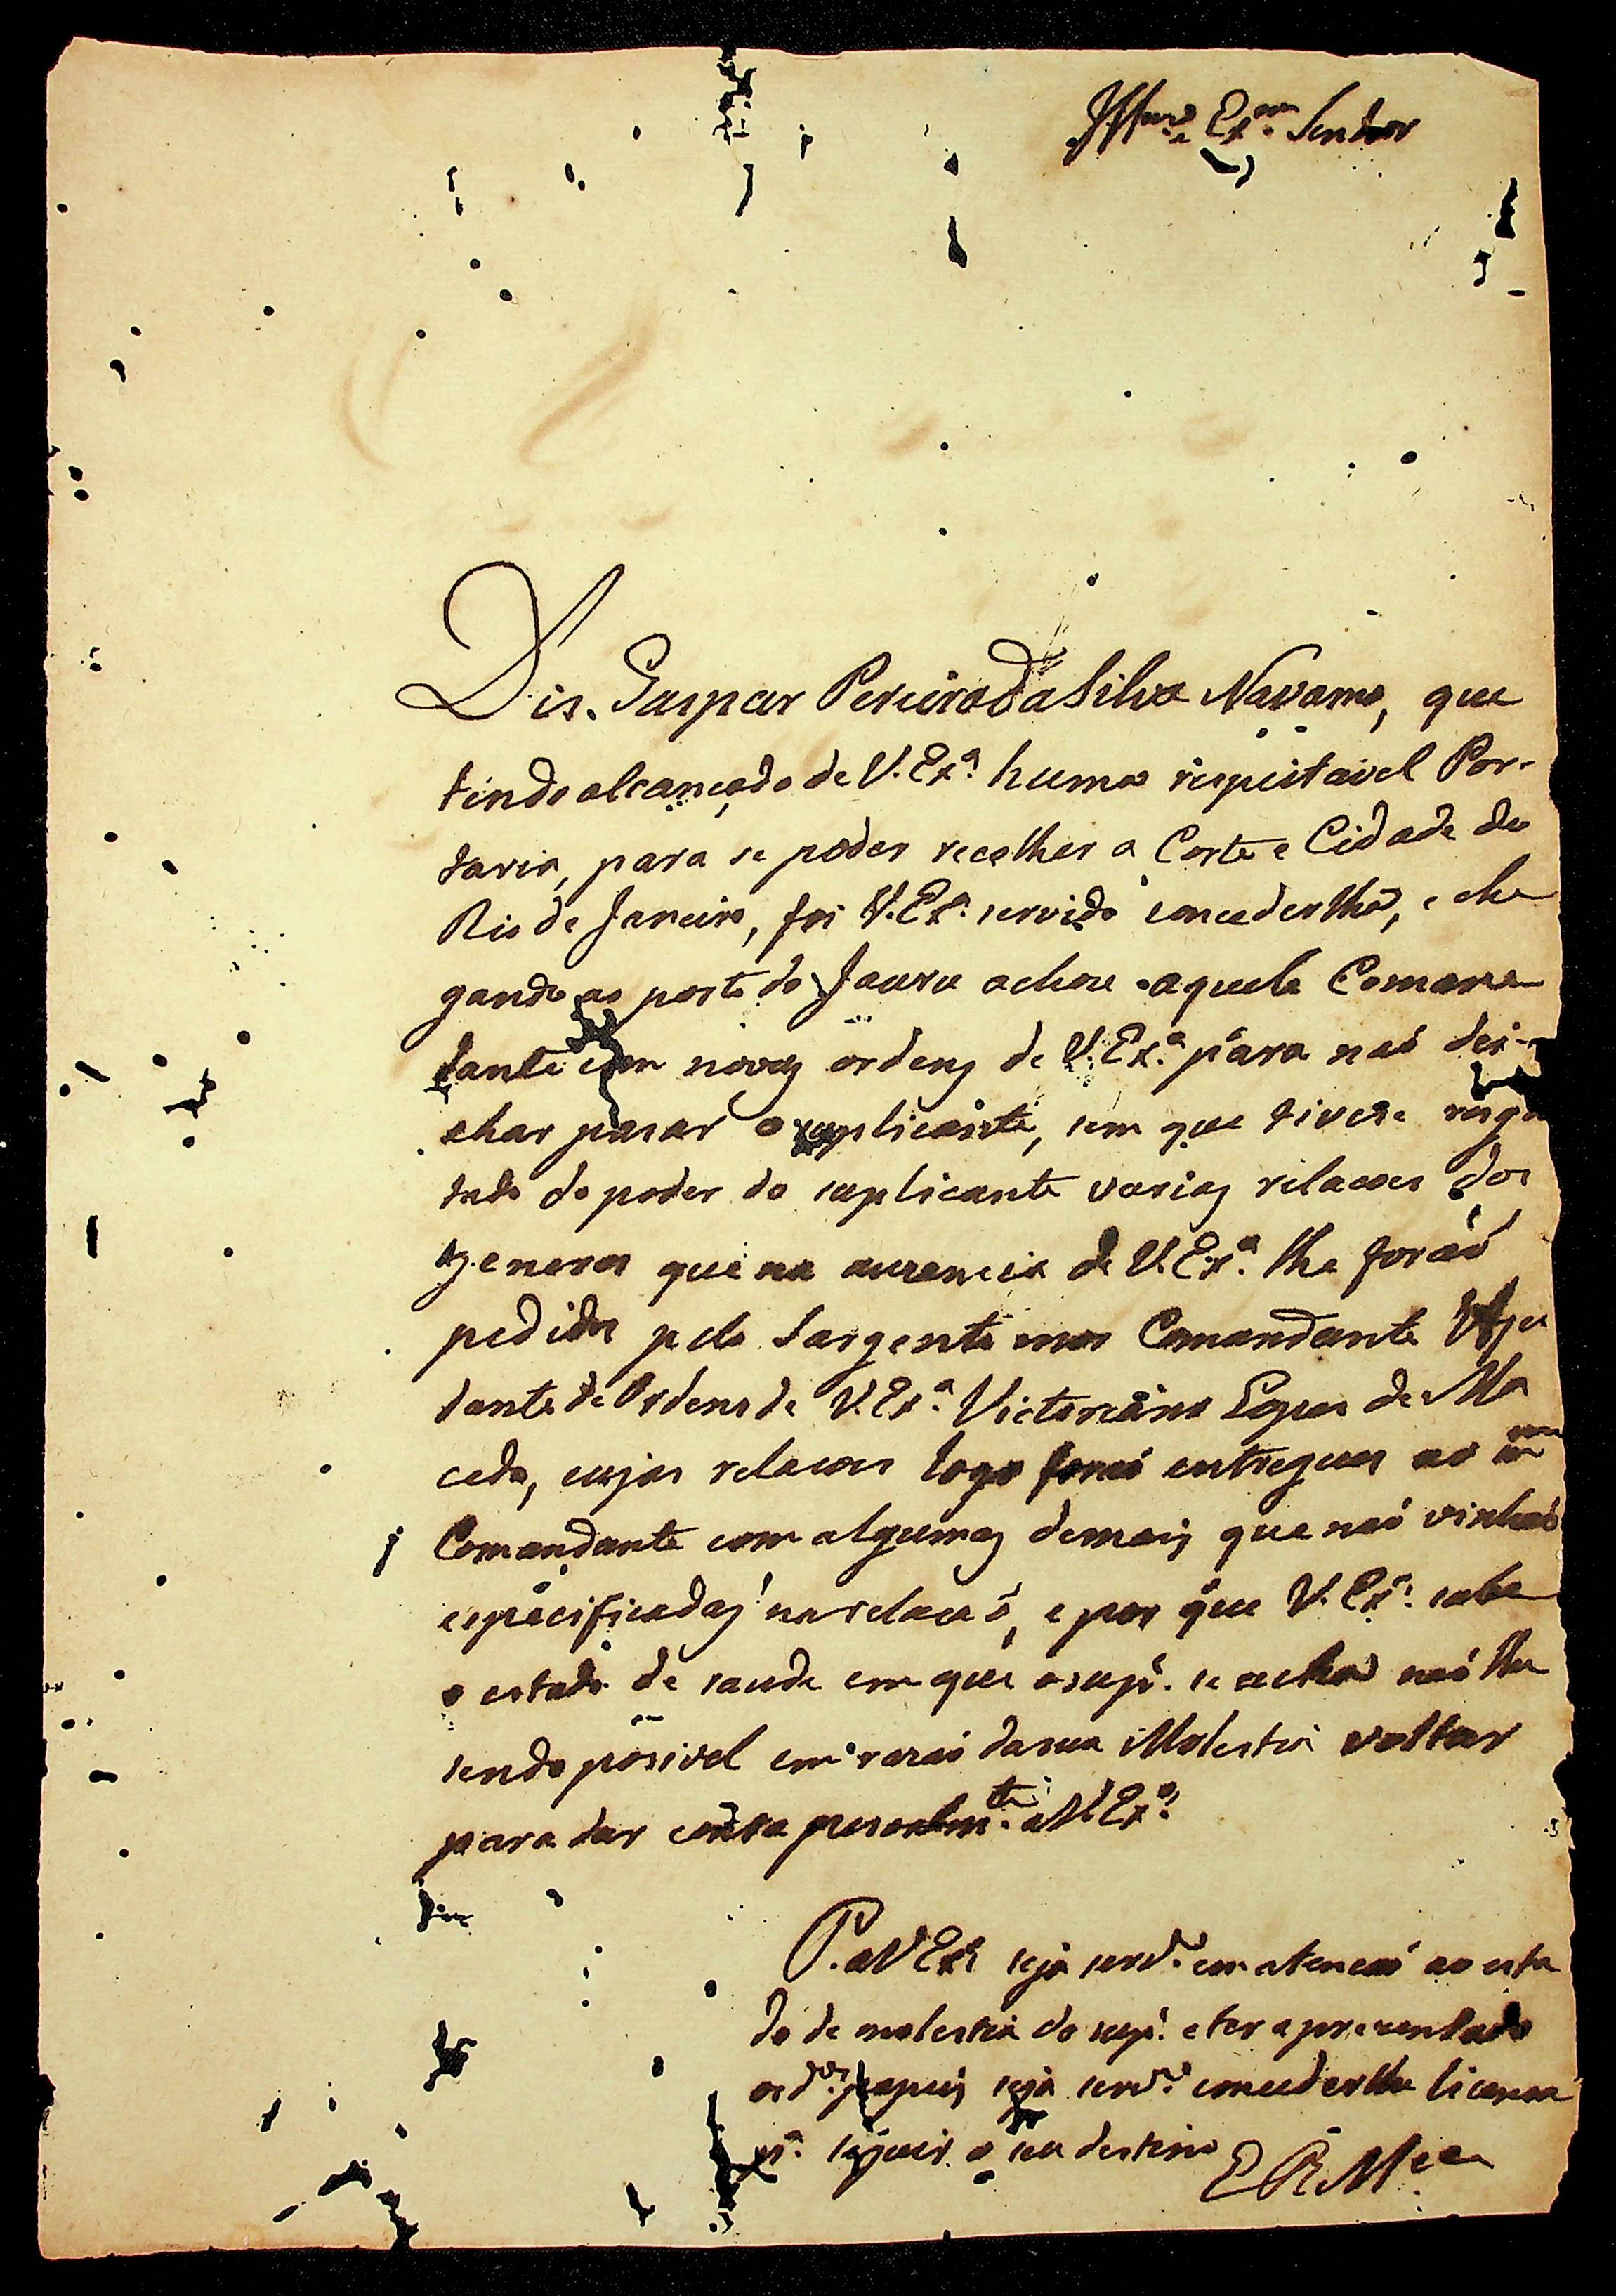 Illmo. e Exmo. Senhor
Dis. Gaspar Pereira da Silva Navarro, que
tindo alcançado de V. Exª. huma respeitavel Por-
taria, para se poder recolher a Corte e Cidade do
Rio de Janeiro, foi V. Exª. servido concederlha, e che
gando ao posto do Jauru achou aquele Coman
dante com novas ordens de V. Exª. para naó dei-
char pasar o suplicante, sem que tivese resga
tado do poder do suplicante varias relacoes dos
generos que na auzencia de V. Exª. lhe foraó
pedidos pelo Sargento mor Comandante Aju
dante de Ordens de V. Exª. Victoriano Lopes de Ma
cedo, cujas relacoes logo foraó entregues ao m.mo
Comandante com algumas demais que naó vinhaó
especificadas na relacaó, e por que V. Exª. sabe
o estado de saude em que o supe. se acha naó lhe
sendo posivel em razaó da sua Molestia voltar
para dar conta pesoalm.te a V. Exª.
P. a V Exª. seja servdº. em atencaó ao esta
do de molestia do supe. e ter aprezentado
os d.os papeis seja servdº. concederlhe licensa
pª. seguir o seu destino
E R M.ce